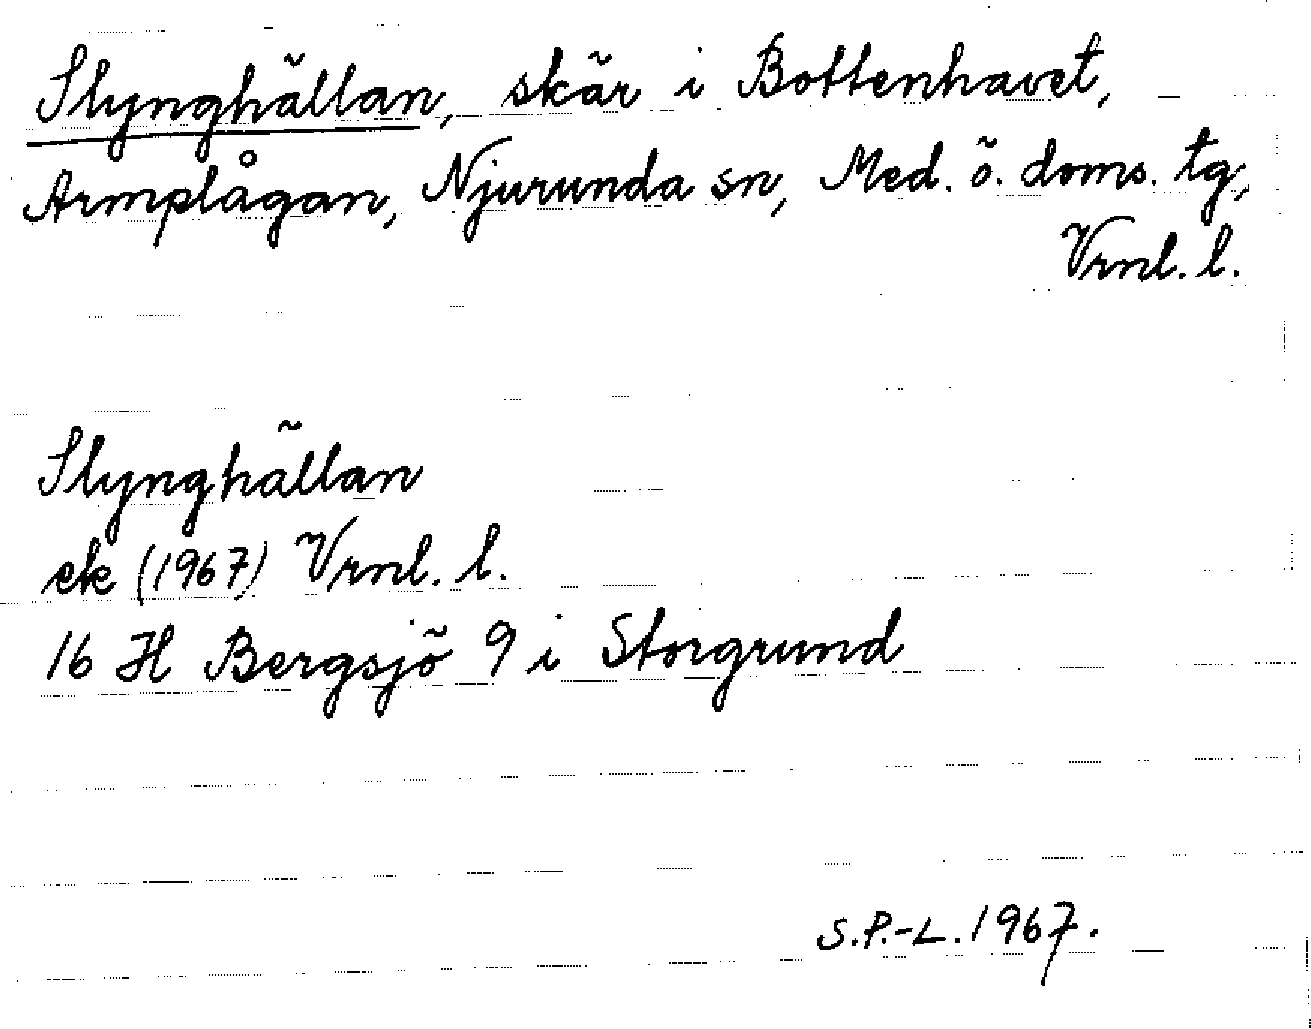 Slynghällan, skär i Bottenhavet,
Armplågan, Njurunda sn, Med. ö. doms. tg,
Vrnl. l.
Slynghällan
ek (1967) Vrnl. l.
16 H Bergsjö 9 i Storgrund
S.P.-L. 1967.